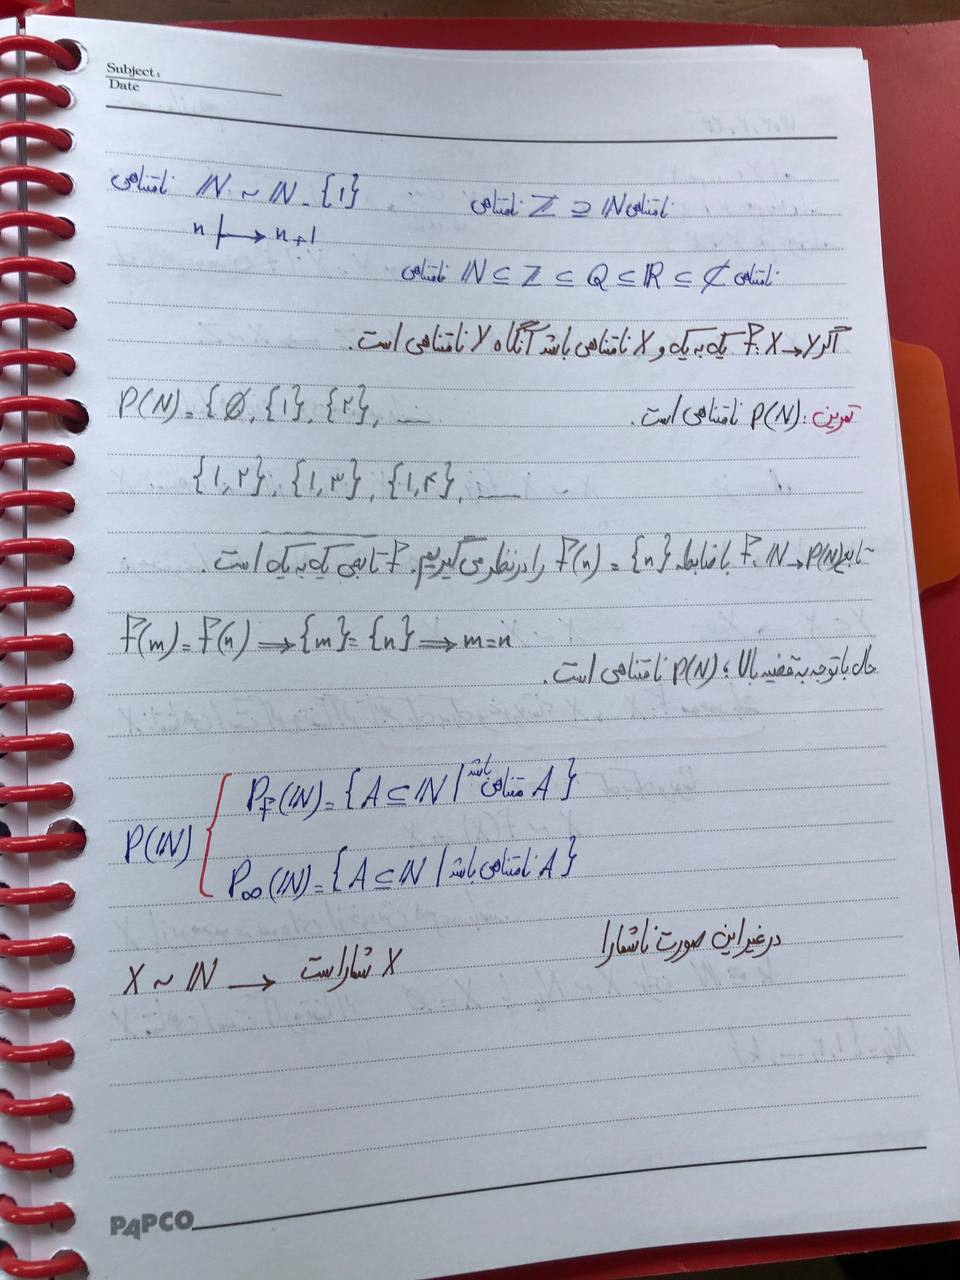 Subject:
Date
نامتناهی ℕ ~ ℕ - {۱}
n ⟼ n+1
نامتناهی ℤ ⊇ ℕ نامتناهی
نامتناهی ℕ ⊆ ℤ ⊆ Q ⊆ ℝ ⊆ ℂ نامتناهی
اگر f: X → Y یک به یک و X نامتناهی باشد آنگاه Y نامتناهی است.
تمرین: P(N) نامتناهی است.
P(N) = {∅, {۱}, {۲}, ...
{۱,۲}, {۱,۳}, {۱,۴}, ...
تابع f: ℕ → P(N) با ضابطه f(n) = {n} را در نظر می گیریم. f تابعی یک به یک است.
f(m) = f(n) → {m} = {n} → m = n
حال با توجه به قضیه بالا، P(N) نامتناهی است.
P(ℕ) { P_f(ℕ) = {A ⊆ ℕ | A متناهی باشد}
P_∞(ℕ) = {A ⊆ ℕ | A نامتناهی باشد}
در غیر این صورت ناشمارا
X ~ ℕ → X شماراست
PAPCO